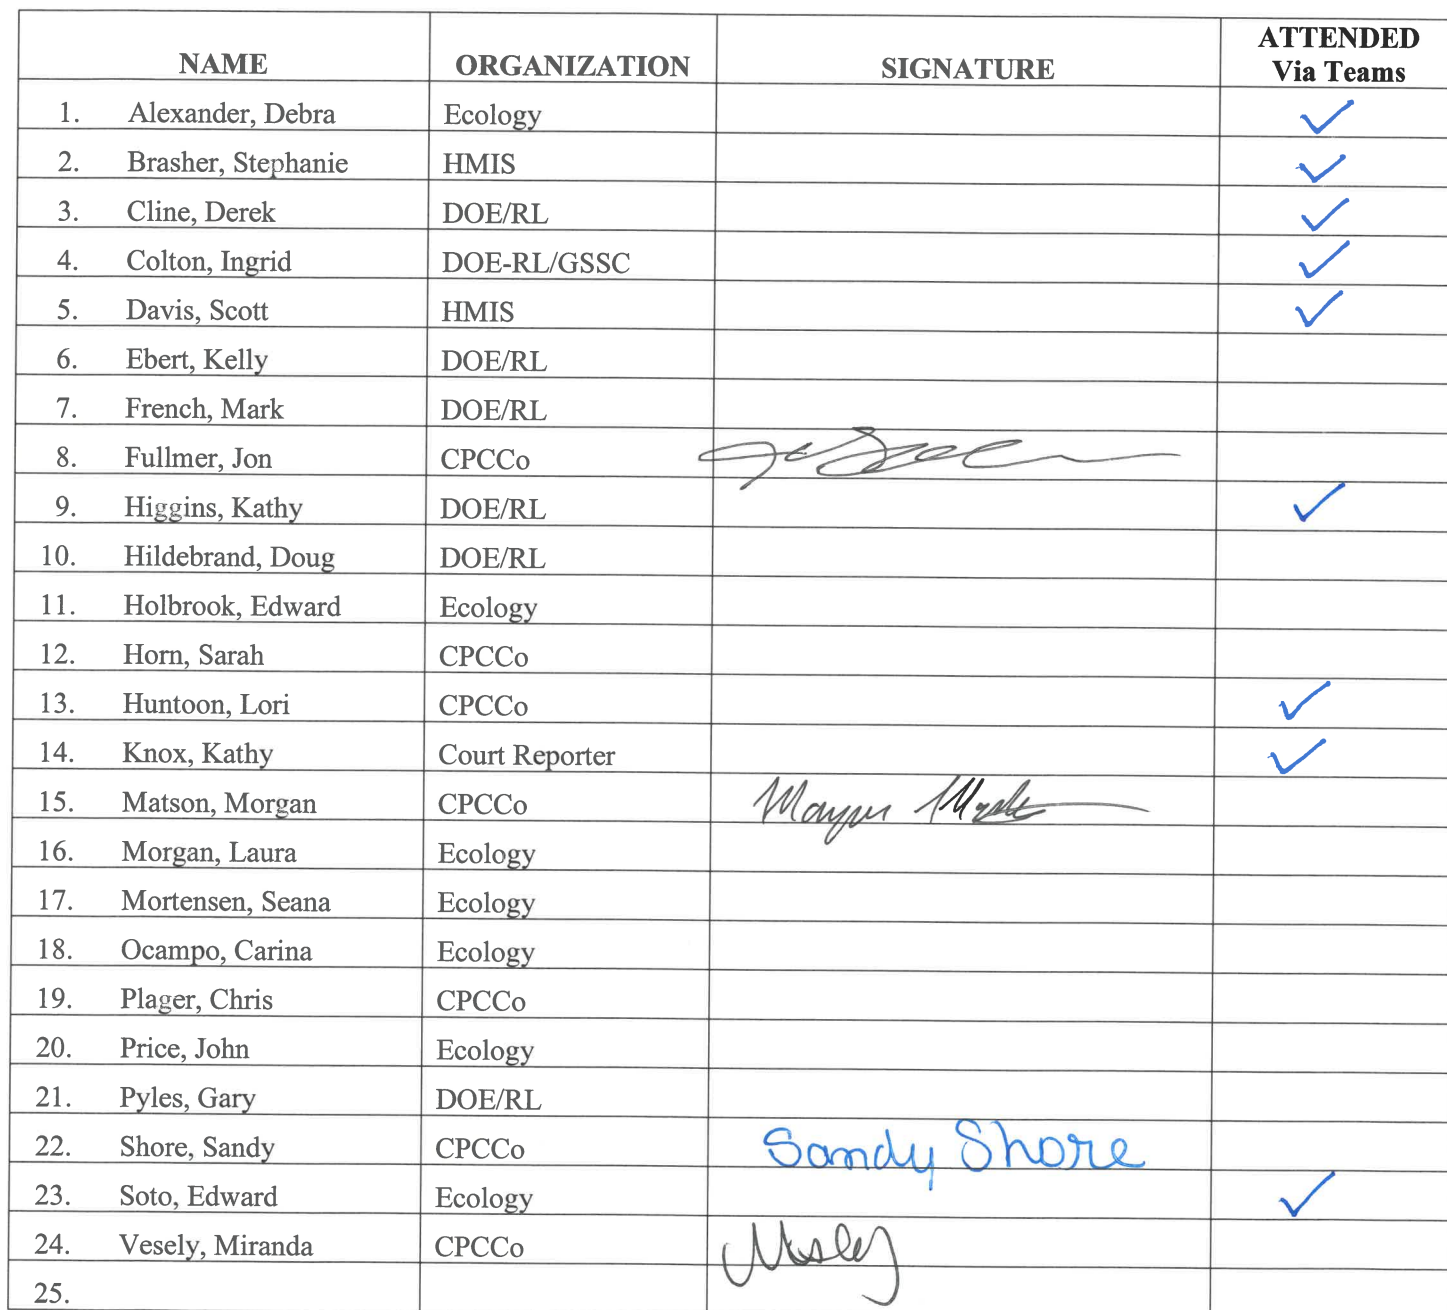 NAME ORGANIZATION SIGNATURE ATTENDED Via Teams
1. Alexander, Debra Ecology ✓
2. Brasher, Stephanie HMIS ✓
3. Cline, Derek DOE/RL ✓
4. Colton, Ingrid DOE-RL/GSSC ✓
5. Davis, Scott HMIS ✓
6. Ebert, Kelly DOE/RL
7. French, Mark DOE/RL
8. Fullmer, Jon CPCCo
9. Higgins, Kathy DOE/RL ✓
10. Hildebrand, Doug DOE/RL
11. Holbrook, Edward Ecology
12. Horn, Sarah CPCCo
13. Huntoon, Lori CPCCo ✓
14. Knox, Kathy Court Reporter ✓
15. Matson, Morgan CPCCo
16. Morgan, Laura Ecology
17. Mortensen, Seana Ecology
18. Ocampo, Carina Ecology
19. Plager, Chris CPCCo
20. Price, John Ecology
21. Pyles, Gary DOE/RL
22. Shore, Sandy CPCCo Sandy Shore
23. Soto, Edward Ecology ✓
24. Vesely, Miranda CPCCo
25.